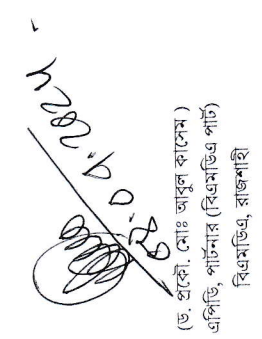 (ড. প্রকৌ. মোঃ আবুল কাসেম )
এপিডি, পার্টনার (বিএমডিএ পার্ট)
বিএমডিএ, রাজশাহী